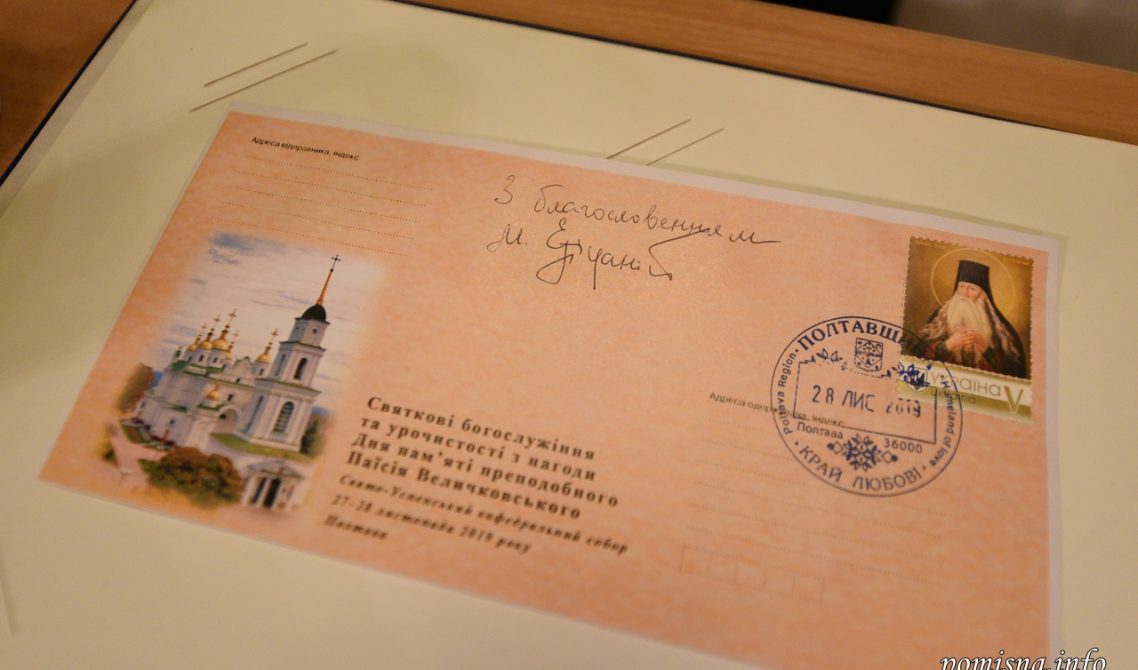 Адреса відправника, індекс
З благословенням
М. Епіфаній
ПОЛТАВЩ
Poltava Region
Homeland of love
28 ЛИС 2019
Полтава 36000
КРАЙ ЛЮБОВІ
Україна V
Адреса одержувача, індекс
Святкові богослужіння
та урочистості з нагоди
Дня пам'яті преподобного
Паїсія Величковського
Свято-Успенський кафедральний собор
27-28 листопада 2019 року
Полтава
pomisna.info